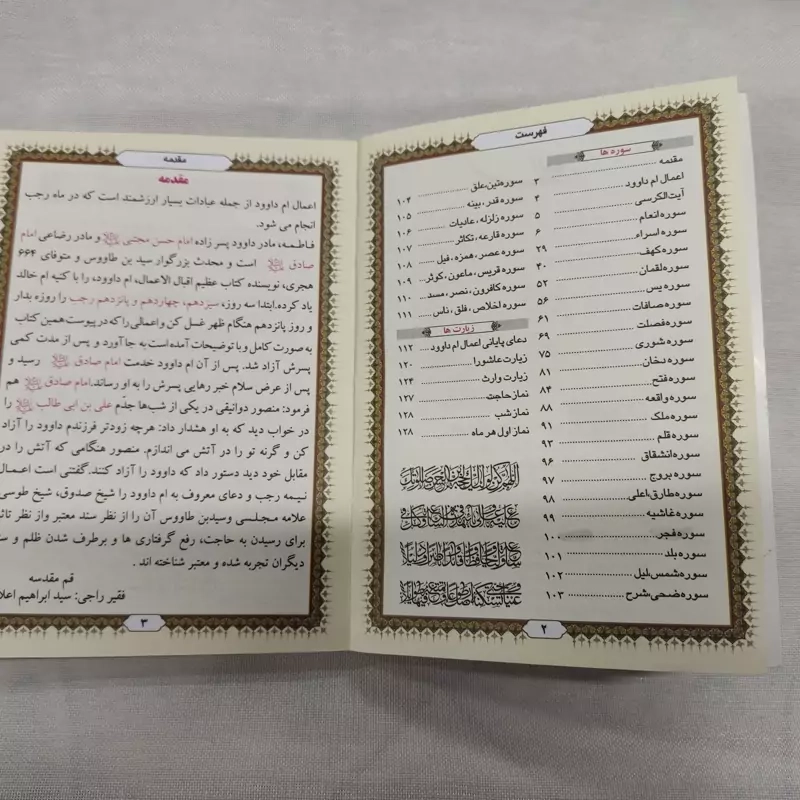 فهرست
سوره ها
مقدمه ۳
اعمال ام داوود ۴
آیت‌الکرسی ۵
سوره انعام ۶
سوره اسراء ۲۹
سوره کهف ۴۰
سوره لقمان ۵۲
سوره یس ۵۶
سوره صافات ۶۱
سوره فصلت ۶۹
سوره شوری ۷۵
سوره دخان ۸۱
سوره فتح ۸۴
سوره واقعه ۸۸
سوره ملک ۹۱
سوره قلم ۹۳
سوره انشقاق ۹۶
سوره بروج ۹۷
سوره طارق،اعلی ۹۸
سوره غاشیه ۹۹
سوره فجر ۱۰۰
سوره بلد ۱۰۱
سوره شمس،لیل ۱۰۲
سوره ضحی،شرح ۱۰۳
سوره تین،علق ۱۰۴
سوره قدر، بینه ۱۰۵
سوره زلزله، عادیات ۱۰۶
سوره قارعه، تکاثر ۱۰۷
سوره عصر، همزه، فیل ۱۰۸
سوره قریس، ماعون، کوثر ۱۰۹
سوره کافرون، نصر، مسد ۱۱۰
سوره اخلاص، فلق، ناس ۱۱۱
زیارت ها
دعای پایانی اعمال ام داوود ۱۱۲
زیارت عاشورا ۱۲۰
زیارت وارث ۱۲۴
نماز حاجت ۱۲۷
نماز شب ۱۲۸
نماز اول هر ماه ۱۲۸
۲
مقدمه
مقدمه
اعمال ام داوود از جمله عبادات بسیار ارزشمند است که در ماه رجب
انجام می شود.
فاطمه، مادر داوود پسر زاده امام حسن مجتبی و مادر رضاعی امام
صادق است و محدث بزرگوار سید بن طاووس و متوفای ۶۶۴
هجری، نویسنده کتاب عظیم اقبال الاعمال، ام داوود، را با کنیه ام خالد
یاد کرده.ابتدا سه روز، سیزدهم، چهاردهم و پانزدهم رجب را روزه بدار
و روز پانزدهم هنگام ظهر غسل کن و اعمالی را که در پیوست همین کتاب
به صورت کامل و با توضیحات آمده است به جا آورد و پس از مدت کمی
پسرش آزاد شد. پس از آن ام داوود خدمت امام صادق رسید و
پس از عرض سلام خبر رهایی پسرش را به او رساند.امام صادق هم
فرمود: منصور دوانیقی در یکی از شب‌ها جدّم علی بن ابی طالب را
در خواب دید که به او هشدار داد: هرچه زودتر فرزندم داوود را آزاد
کن و گرنه تو را در آتش می اندازم. منصور هنگامی که آتش را در
مقابل خود دید دستور داد که داوود را آزاد کنند.گفتنی است اعمال
نیمه رجب و دعای معروف به ام داوود را شیخ صدوق، شیخ طوسی
علامه مجلسی وسیدبن طاووس آن را از نظر سند معتبر واز نظر
برای رسیدن به حاجت، رفع گرفتاری ها و برطرف شدن ظلم و
دیگران تجربه شده و معتبر شناخته اند .
قم مقدسه
فقیر راجی: سید ابراهیم
۳